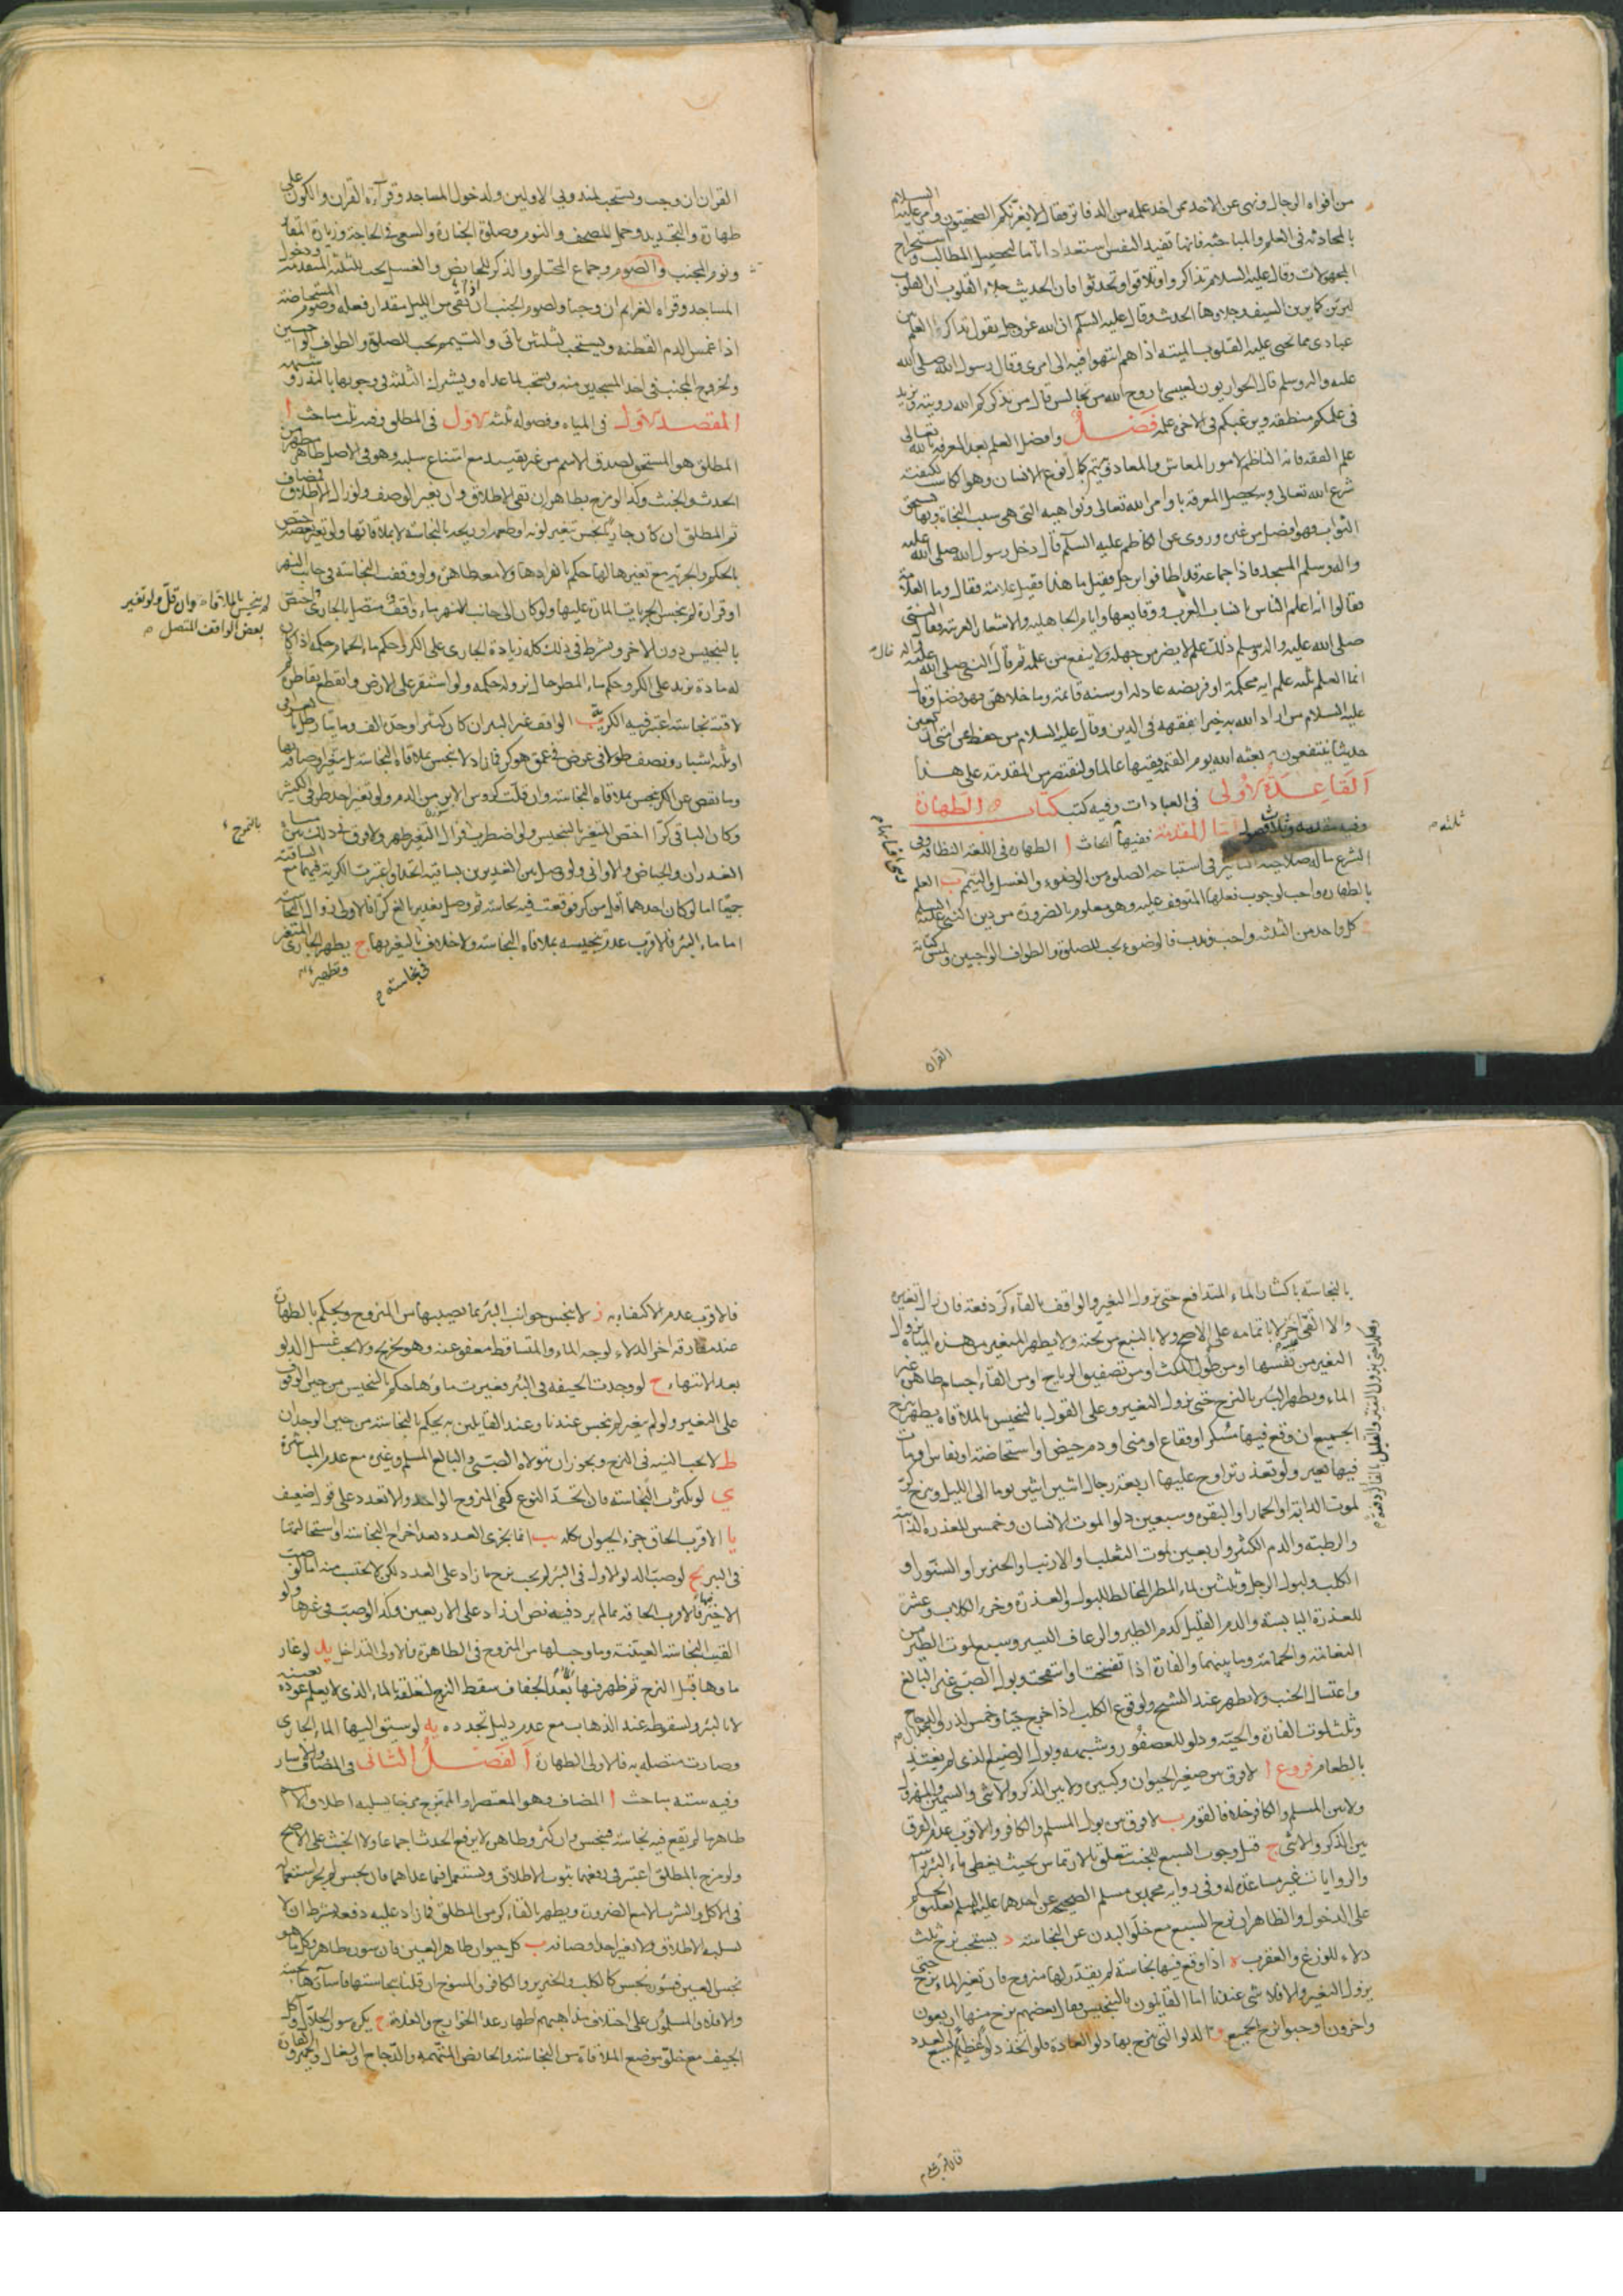 من افواه الرجال ونهى عن الاخذ ممن اخذ علمه من الدفاتر فقال لا يغرنكم الصحفيون وامر عليه السلام
بالمحادثة فى العلم والمباحثة فانها تفيد النفس استعدادا تاما لتحصيل المطالب واستخراج
المجهولات وقال عليه السلام تذاكروا وتلاقوا وتحدثوا فان الحديث جلاء القلوب ان القلوب
لترين كما يرين السيف وجلاوها الحديث وقال عليه السلام ان الله عز وجل يقول تذاكر العلم بين
عبادى مما تحيى عليه القلوب الميتة اذا هم انتهوا فيه الى امرى وقال رسول الله صلى الله
عليه واله وسلم قال الحواريون لعيسى يا روح الله من نجالس قال من يذكركم الله رويته ويزيد
فى علمكم منطقه ويرغبكم فى الاخرة عمله فصل وافضل العلم بعد المعرفة بالله تعالى
علم الفقه فانه الناظم لامور المعاش والمعاد وبه يتم كمال نوع الانسان وهو الكاسب لكيفية
شرع الله تعالى وبه يحصل المعرفة باوامر الله تعالى ونواهيه التى هى سبب النجاة وبها يستحق
الثواب فهو افضل من غيره وروى عن الكاظم عليه السلام قال دخل رسول الله صلى الله عليه
واله وسلم المسجد فاذا جماعة قد اطافوا برجل فقيل ما هذا فقيل علامة فقال وما العلامة
فقالوا انه اعلم الناس بانساب العرب ووقايعها وايام الجاهلية والاشعار العربية فقال النبى
صلى الله عليه واله وسلم ذلك علم لا يضر من جهله ولا ينفع من علمه ثم قال النبى صلى الله عليه واله
انما العلم ثلثة علم اية محكمة او فريضة عادلة او سنة قائمة وما خلاهن فهو فضل وقال
عليه السلام من اراد الله به خيرا يفقهه فى الدين وقال عليه السلام من حفظ على امتى اربعين
حديثا ينتفعون به بعثه الله يوم القيمة فقيها عالما ولنقتصر من المقدمة على هذا
القاعدة الاولى فى العبادات وفيه كتب كتاب الطهارة
وفيه مقدمة اما المقدمة ففيها ابحاث ا الطهارة فى اللغة النظافة وفى
الشرع ماله صلاحية التاثير فى استباحة الصلوة من الوضوء والغسل والتيمم ب العلم
بالطهارة واجب لوجوب فعلها المتوقف عليه وهو معلوم بالضرورة من دين النبى عليه السلم
كل واحد من الثلثة واجب وندب فالوضوء يجب للصلوة والطواف الواجبين ولمس كتابة
ثلثه
القران
القران ان وجب ويستحب لمندوبى الاولين ولدخول المساجد وقرآءة القران والكون على
طهارة والتجديد وحمل المصحف والنوم وصلوة الجنازة والسعى فى الحاجة وزيارة المقابر
ونوم الجنب والصوم وجماع المحتلم والذكر للحايض والغسل يجب للثلثة المتقدمة ودخول
المساجد وقراءة العزايم ان وجبا ولصوم الجنب اذا بقى من الليل مقدار فعله وصوم المستحاضة
اذا غمس الدم القطنة ويستحب لثلثين ياتى والتيمم يجب للصلوة والطواف الواجبين
ولخروج المجنب فى احد المسجدين منه ويستحب لما عداه ويشترك الثلثة فى وجوبها بالنذر وشبهه
المقصد الاول فى المياه وفصوله ثلثة الاول فى المطلق وفيه ثلث مباحث ا
المطلق هو المستحق لصدق الاسم من غير تقييد مع امتناع سلبه وهو فى الاصل طاهر مطهر من
الحدث والخبث وكذا لو مزج بطاهر ان بقى الاطلاق وان تغير الوصف ولو زال الاطلاق فمضاف
ثم المطلق ان كان جاريا نجس بتغير لونه او طعمه او ريحه بالنجاسة لا بملاقاتها ولو تغير بعضه اختص
بالحكم والجرية مع تغيرها لها حكم بانفرادها ولا معطاهرة ولو وقفت النجاسة فى جانب النهر
او قراره لم ينجس الجريات المارة عليها ولو كان الى جانب النهر ماء واقف متصل بالجارى واختص
بالتنجيس دون الاخر ويشترط فى ذلك كله زيادة الجارى على الكر وحكم ماء الحمام حكمه اذا كان
له مادة تزيد على الكر وحكم ماء المطر حال نزوله حكمه ولو استقر على الارض وانقطع تقاطره ثم
لاقته نجاسة اعتبر فيه الكرية ب الواقف غير البئر ان كان كثيرا وحده الف ومايتا رطل بالعراقى
او ثلثة اشبار ونصف طولا فى عرض فى عمق هو كر فما زاد لا ينجس بملاقاة النجاسة بل بتغير اوصافه بها
وما نقص عن الكر ينجس بملاقاة النجاسة وان قلت كروس الابر من الدم ولو تغير احد طرفى الكثير
وكان الباقى كرا اختص المتغير بالتنجيس ولو اضطرب فزال التغير طهر ولا فرق فى ذلك بين مياه
الغدران والحياض والاوانى ولو وصل بين الغديرين بساقية اتحدا واعتبرت الكرية فيهما مع الساقية
جميعا اما لو كان احدهما اقل من كر فوقعت فيه نجاسة ثم وصل بغدير بالغ كرا فالاولى زوال النجاسة
اما ماء البئر فالاقرب عدم تنجيسه بملاقاة النجاسة ولا خلاف بالتغير بها ج يطهر الجارى المتغير
لم ينجس بالملاقاة وان قل ولو تغير
بعض الواقف المتصل
بالتموج
وتطهير
فى نجاسته
بالنجاسة باكثار الماء المتدافع حتى يزول التغير والواقف بالقآء كر دفعة فان زال التغير
والا القى اخر لا باتمامه على الاصح ولا بالنبع من تحته ولا يطهر المتغير من هذه المياه بزوال
التغير من نفسها او من طول المكث او من تصفيق الرياح او من القاء اجسام طاهرة غير
الماء ويطهر البئر بالنزح حتى يزول التغير وعلى القول بالتنجيس بالملاقاة يطهر بنزح
الجميع ان وقع فيها مسكر او فقاع او منى او دم حيض او استحاضة او نفاس او مات
فيها بعير ولو تعذر تراوح عليها اربعة رجال اثنين اثنين يوما الى الليل وبنزح كر
لموت الدابة او الحمار او البقرة وسبعين دلوا لموت الانسان وخمسين للعذرة الذائبة
والرطبة والدم الكثير واربعين لموت الثعلب او الارنب او الخنزير او السنور او
الكلب ولبول الرجل وثلثين لماء المطر المخالط للبول والعذرة وخرء الكلاب وعشر
للعذرة اليابسة والدم القليل كدم الطير والرعاف اليسير وسبع لموت الطير من
النعامة والحمامة وما بينهما والفارة اذا تفسخت او انتفخت وبول الصبى غير البالغ
واغتسال الجنب ولا يطهر عند الشيخ ولوقوع الكلب اذا خرج حيا وخمس لذرق الدجاج الجلال
وثلث لموت الفارة والحية ودلو للعصفور وشبهه وبول الرضيع الذى لم يغتذ
بالطعام فروع ا لا فرق بين صغير الحيوان وكبيره ولا بين الذكر والانثى والسمين والمهزول
ولا بين المسلم والكافر خلافا لقوم ب لا فرق بين بول المسلم والكافر والاقرب عدم الفرق
بين الذكر والانثى ج قيل وجوب السبع للجنب متعلق بالارتماس بحيث يغطى ماء البئر
والروايات غير مساعدة له وفى رواية محمد بن مسلم الصحيحة عن احدهما عليهما السلم تعليق الحكم
على الدخول والظاهر ان نزح السبع مع خلو البدن عن النجاسة د يستحب نزح ثلث
دلاء للوزغ والعقرب ه اذا وقع فيها نجاسة لم يقدر لها منزوح فان تغير الماء نزح حتى
يزول التغير والا فلا شى عندنا اما القايلون بالتنجيس فقال بعضهم نزح منها اربعون
واخرون اوجبوا نزح الجميع و الدلو التى ينزح بها دلو العادة فلو اتخذ دلو عظيم يسع العدد
فالاقرب عدم
فالاقرب عدم الاكتفاء به ز لا ينجس جوانب البئر بما يصيبها من المنزوح ويحكم بالطهارة
عند مفارقة اخر الدلاء لوجه الماء والمتساقط معفو عنه وهو تخريج ولا يجب غسل الدلو
بعد الانتهاء ح لو وجدت الجيفة فى البئر فغيرت ماؤها حكم بالتنجيس من حين الوقوف
على التغير ولو لم يتغير لم ينجس عندنا وعند القايلين به يحكم بالنجاسة من حين الوجدان
ط لا يجب النية فى النزح ويجوز ان يتولاه الصبى والبالغ المسلم وغيره مع عدم المباشرة
ى لو تكثرت النجاسة فان اتحد النوع كفى المنزوح الواحد والا تعدد على قول ضعيف
يا الاقرب الحاق جزء الحيوان بكله يب انما يجزى العدد بعد اخراج النجاسة او استحالتها
فى البئر يج لو صب الدلو الاول فى البئر لم يجب نزح ما زاد على العدد لكن لا يحتسب منه اما لو صب
الاخير فالاقرب الحاقه بما لم يرد فيه نص ان زاد على الاربعين وكذا لو صب فى غيرها ولو
القيت النجاسة العينية وما وجب لها من المنزوح فى الطاهرة فالاولى التداخل يد لو غار
ماوها قبل النزح ثم ظهر فيها بعد الجفاف سقط النزح لتعلقه بالماء الذى لا يعلم عوده بعينه
لا بالبئر ولسقوطه عند الذهاب مع عدم دليل تجدده يه لو سيق اليها الماء الجارى
وصارت متصلة به فالاولى الطهارة الفصل الثانى فى المضاف والاسار
وفيه ستة مباحث ا المضاف وهو المعتصر او الممتزج مزجا يسلبه اطلاق الاسم
طاهر ما لم يقع فيه نجاسة فينجس وان كثر وطاهره لا يرفع الحدث اجماعا ولا الخبث على الاصح
ولو مزج بالمطلق اعتبر فى رفعهما ثبوت الاطلاق ويستعمل فيما عداهما فان نجس لم يجز استعماله
فى الاكل والشرب الا مع الضرورة ويطهر بالقاء كر من المطلق فما زاد عليه دفعة بشرط ان لا
يسلبه الاطلاق ولا يغير احد اوصافه ب كل حيوان طاهر العين فان سوره طاهر وكل ما هو
نجس العين فسؤره نجس كالكلب والخنزير والكافر والمسوخ ان قلنا بنجاستها فاسآرها نجسة
والا فلا والمسلمون على اختلاف مذاهبهم اطهار عدا الخوارج والغلاة ج يكره سور الجلال وآكل
الجيف مع خلو موضع الملاقاة من النجاسة والحايض المتهمة والدجاج والبغال والحمير